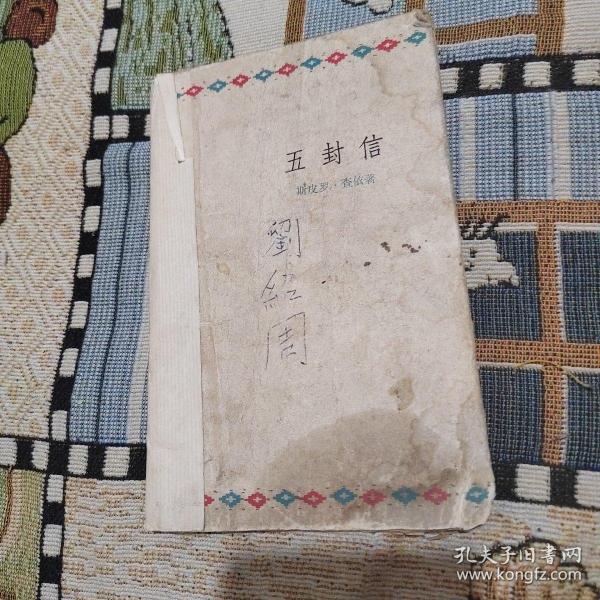 五封信
斯皮罗·查依著
劉紹周
孔夫子旧书网
www.kongfz.com